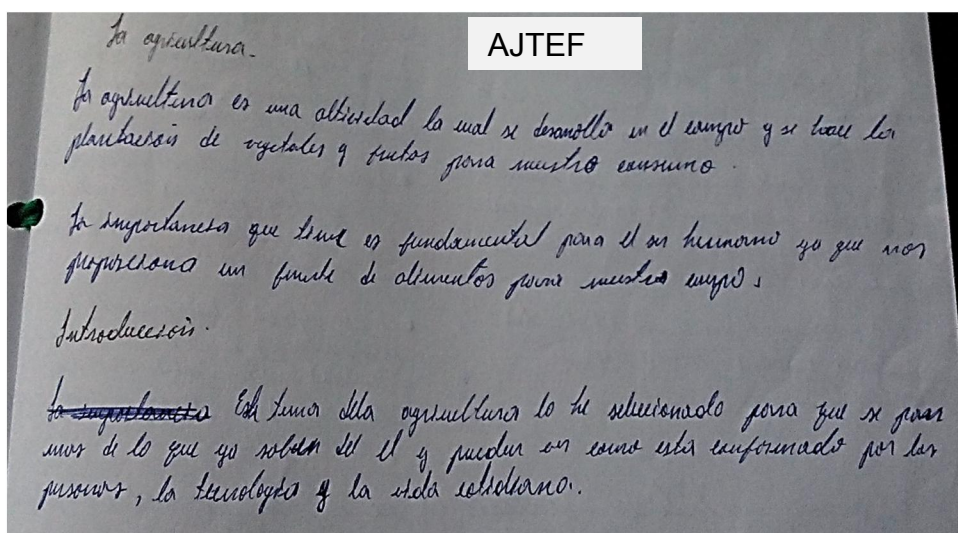 La agricultura.
AJTEF
La agricultura es una actividad la cual se desarrolla en el campo y se hace la
plantación de vegetales y frutos para nuestro consumo.
La importancia que tiene es fundamental para el ser humano ya que nos
proporciona un fuente de alimentos para nuestro cuerpo.
Introducción.
La importancia Este tema della agricultura lo he seleccionado para que se
mas de lo que ya saben del el y puedan como esta conformado por las
personas, la tecnología y la vida cotidiana.